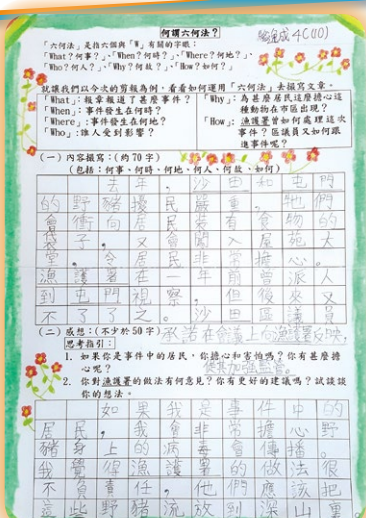 何謂六何法？
4C(10)
「六何法」是指六個與「W」有關的字眼：
「What？何事？」、「When？何時？」、「Where？何地？」、
「Who？何人？」、「Why？何故？」、「How？如何？」
就讓我們以今次的剪報為例，看看如何運用「六何法」去撰寫文章。
「What」：報章報道了甚麼事件？
「When」：事件發生在何時？
「Where」：事件發生在何地？
「Who」：誰人受到影響？
「Why」：為甚麼居民這麼擔心這種動物在市區出現？
「How」：漁護署曾如何處理這次事件？區議員又如何跟進事呢？
（一）內容撮寫：（約70字）
（包括：何事、何時、何地、何人、何故、如何）
去年，沙田和屯門
的野豬擾民嚴重，牠們
會衝向居民裝有食物的
袋子，又會闖入屋苑大
堂，令居民非常擔心。
漁護署在一年前曾派人
到屯門視察，但後來又
不了了之。沙田區議員
（二）感想：（不少於50字）承諾在會議上向漁護署反映，
思考指引：促其加強監管。
1. 如果你是事件中的居民，你擔心和害怕嗎？你有甚麼擔
心呢？
2. 你對漁護署的做法有何意見？你有更好的建議嗎？試談談
你的想法。
如果我是事件中的
居民，我會非常擔心野
豬身上的病毒會傳播。
我覺得漁護署的做法很
不負責任，他們應該把
這些野豬流放到深山裏